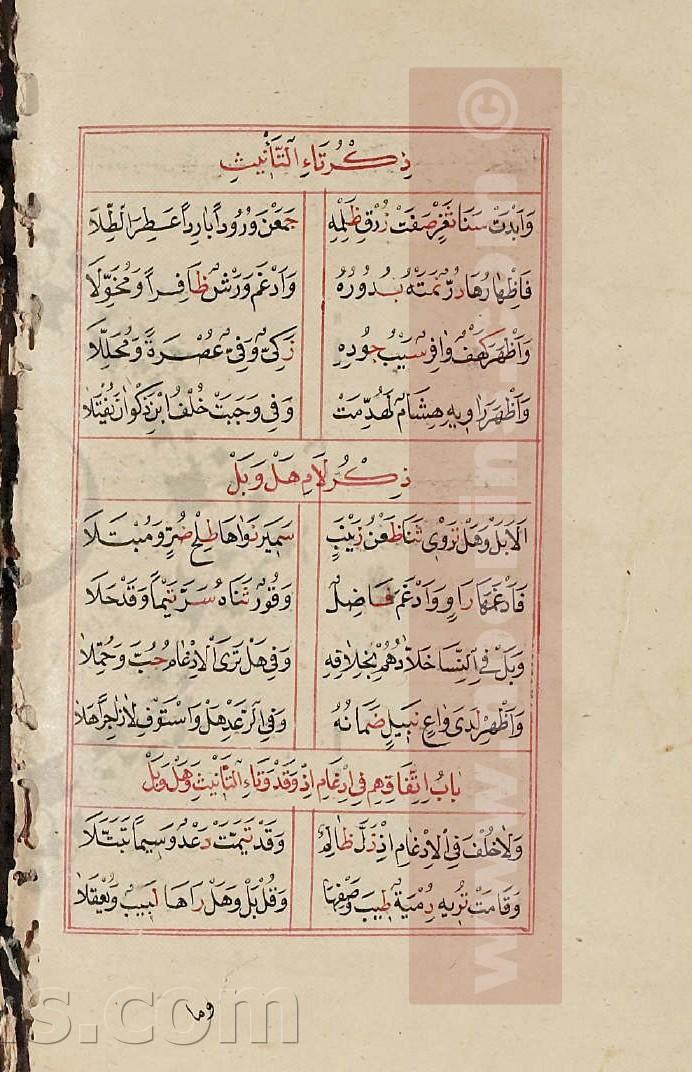 ذِكْرُ تَاءِ التَّأْنِيثِ
وَاَبْدَتْ سَنَا ثَغْرٍ صَفَتْ زُرْقُ ظَلْمِهِ جَمَعْنَ وُرُودًا بَارِدًا عَطِرَ الطِّلَا
فَاِظْهَارُهَا دُرٌّ نَمَتْهُ بُدُورُهُ وَاَدْغَمَ وَرْشٌ ظَافِرًا وَمُخَوِّلَا
وَاَظْهَرَ كَهْفٌ وَافِرٌ سَيْبُ جُودِهِ زَكِيٌّ وَفِيٌّ عُصْرَةً وَمُحَلَّلَا
وَاَظْهَرَ رَاوِيهِ هِشَامٌ لَهُدِّمَتْ وَفِي وَجَبَتْ خُلْفُ ابْنِ ذَكْوَانَ يُفْتَلَا
ذِكْرُ لَامِ هَلْ وَبَلْ
اَلَا بَلْ وَهَلْ تَرْوِي ثَنَا ظَعْنِ زَيْنَبٍ سَمِيرَ نَوَاهَا طِلْحَ ضُرٍّ وَمُبْتَلَا
فَاَدْغَمَهَا رَاوٍ وَاَدْغَمَ فَاضِلٌ وَقُورٌ ثَنَاهُ سَرَّ تَيْمًا وَقَدْ حَلَا
وَبَلْ فِي النِّسَا خَلَّادُهُمْ بِخِلَافِهِ وَفِي هَلْ تَرَى الْاِدْغَامُ حُبَّ وَحُمِّلَا
وَاَظْهِرْ لَدَى وَاعٍ نَبِيلٍ ضَمَانُهُ وَفِي الرَّعْدِ هَلْ وَاسْتَوْفِ لَا زَاجِرًا هَلَا
بَابُ اتِّفَاقِهِمْ فِي اِدْغَامِ اِذْ وَقَدْ وَتَاءِ التَّأْنِيثِ وَهَلْ وَبَلْ
وَلَا خُلْفَ فِي الْاِدْغَامِ اِذْ ذَلَّ ظَالِمٌ وَقَدْ تَيَّمَتْ دَعْدٌ وَسِيمًا تَبَتَّلَا
وَقَامَتْ تُرِيهِ دُمْيَةٌ طِيبَ وَصْفِهَا وَقُلْ بَلْ وَهَلْ رَاهَا لَبِيبٌ وَيَعْقِلَا
وما
s.com